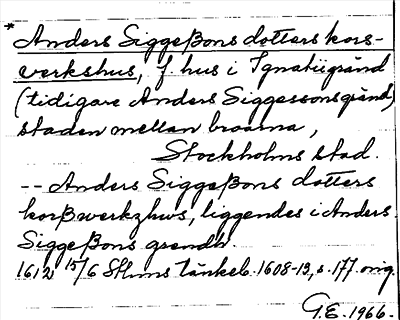 * Anders Siggeßons dotters kors-
verkshus, f. hus i Ignatiigränd
(tidigare Anders Siggessonsgränd)
staden mellan broarna,
Stockholms stad.
-- Anders Siggeßons dotters
korßwerkzhws, liggendes i Anders
Siggeßons grendh
1612 15/6 Sthms tänkeb. 1608-13, s. 177 orig.
G.E. 1966.